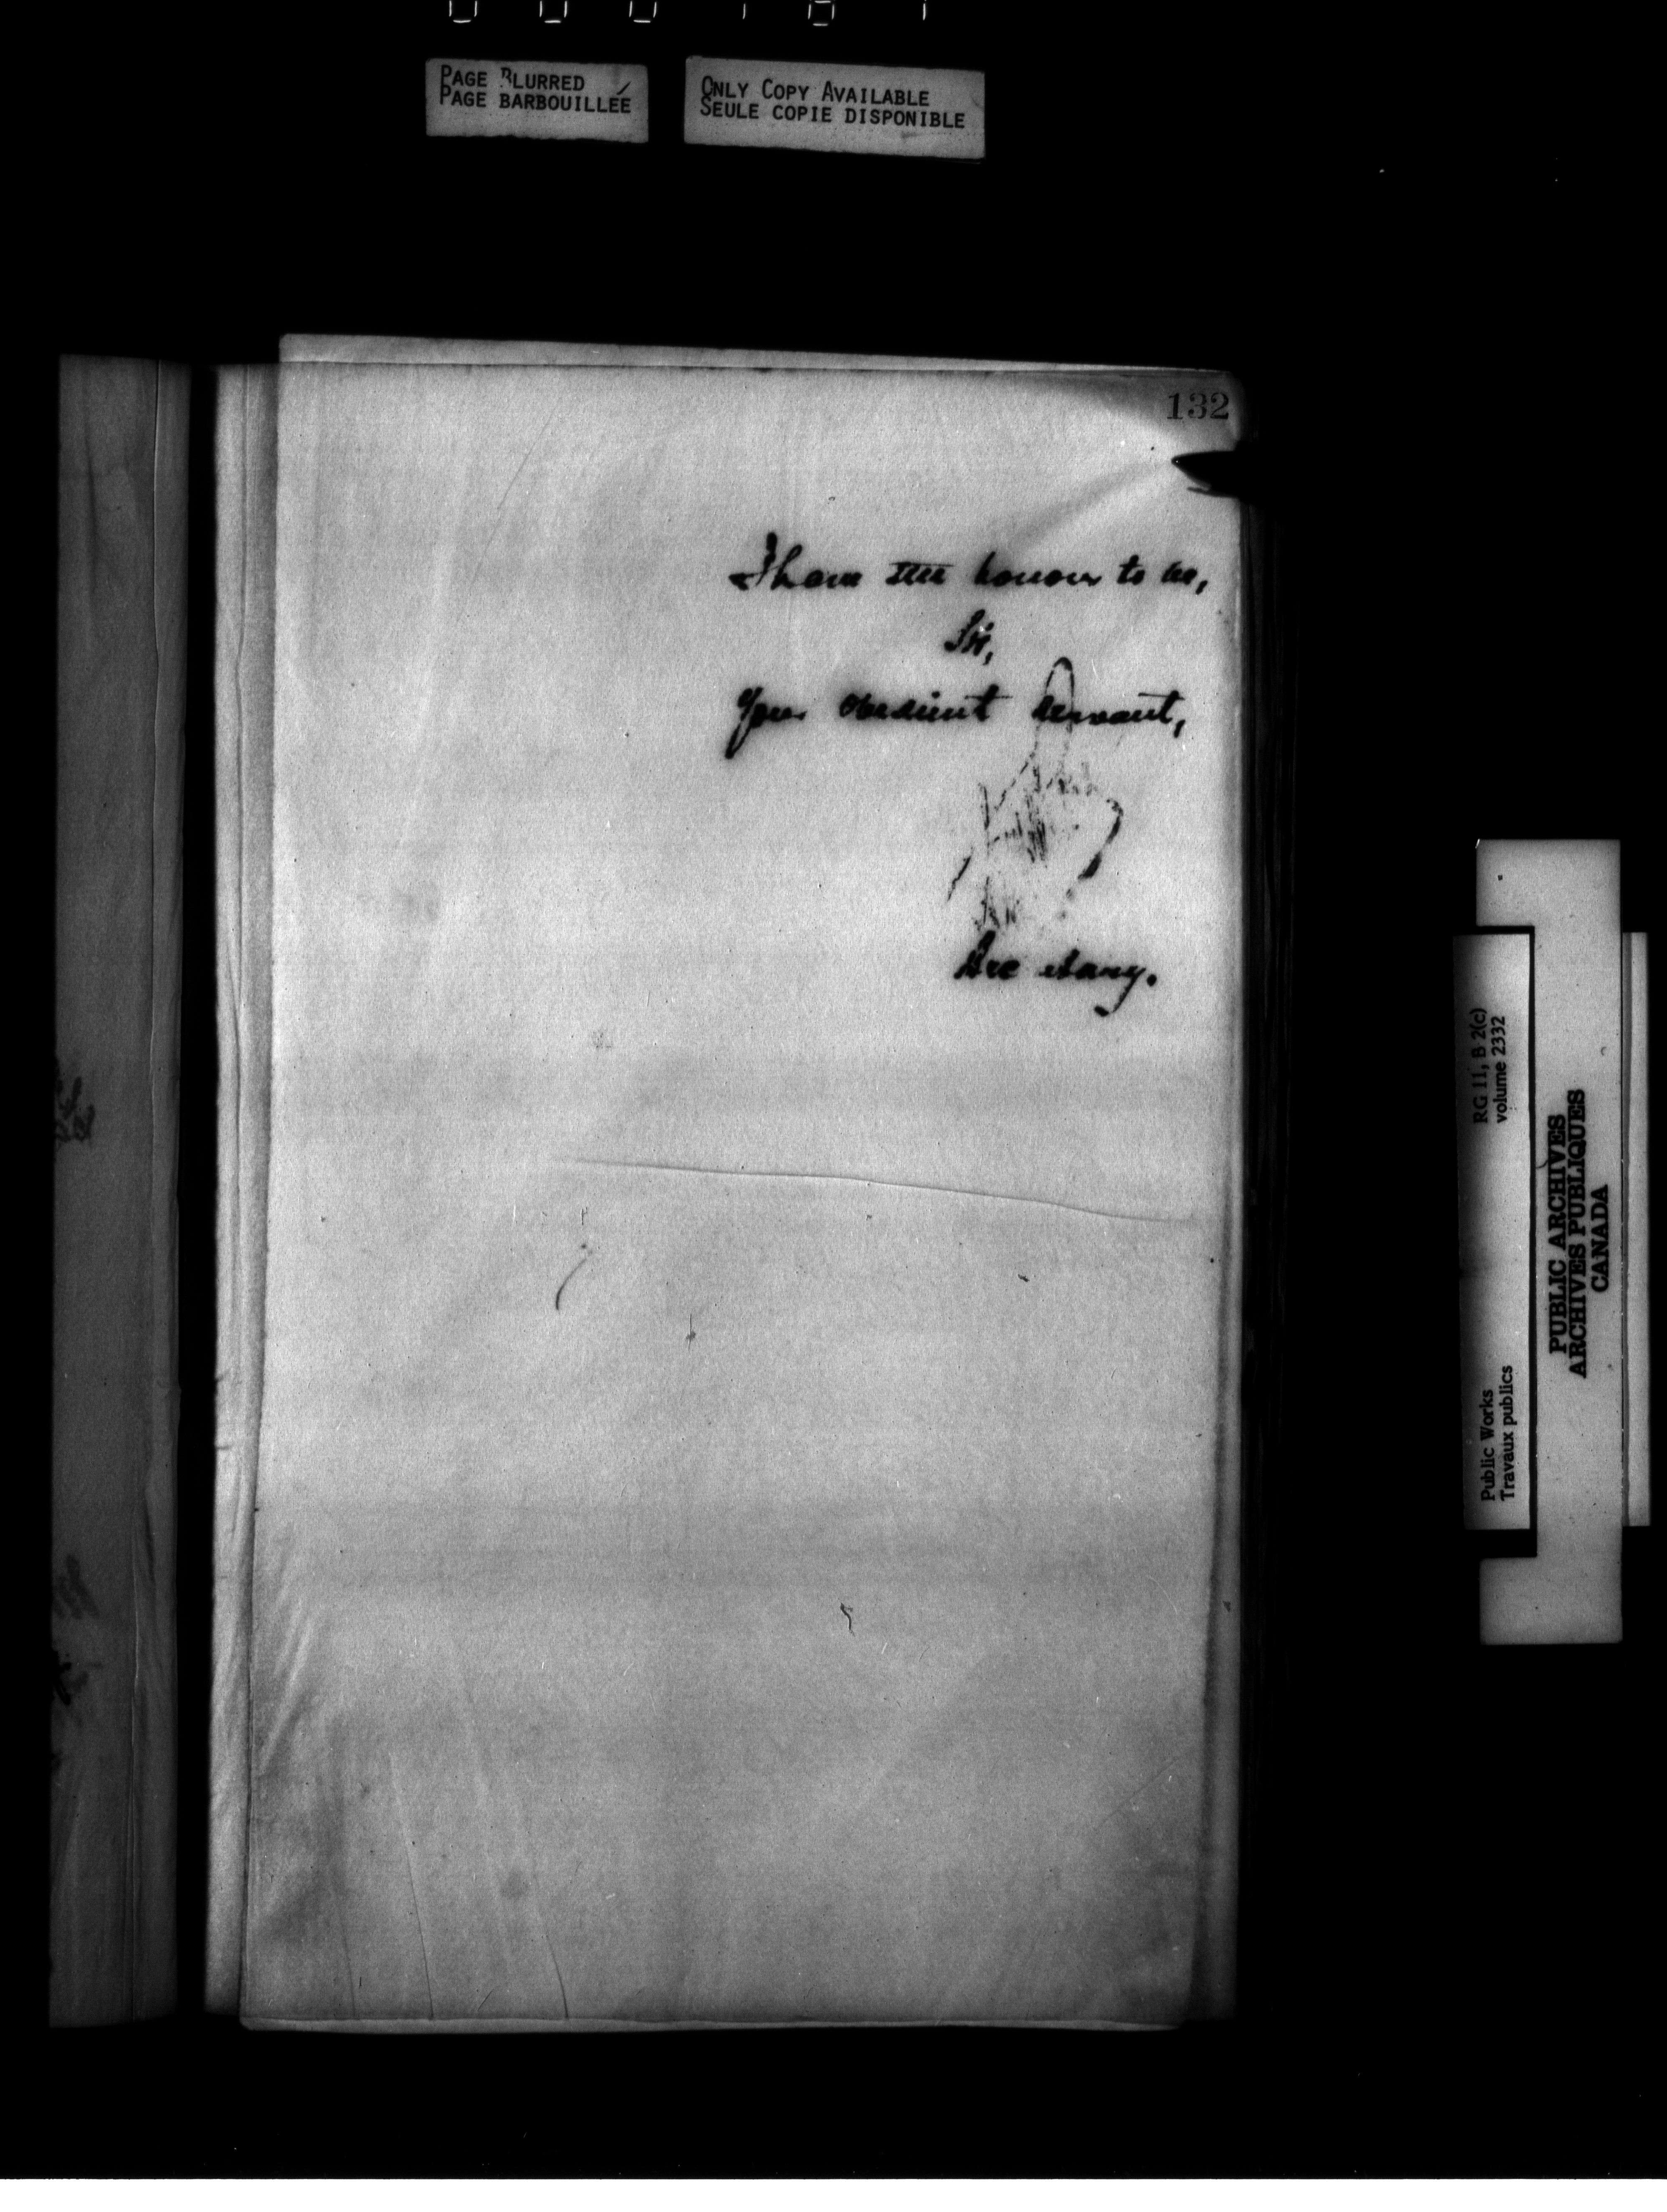 PAGE BLURRED
PAGE BARBOUILLÉE
ONLY COPY AVAILABLE
SEULE COPIE DISPONIBLE
132
I have the honour to be,
Sir,
Your obedient servant,
RG 11, B 2(c)
volume 2332
Public Works
Travaux publics
PUBLIC ARCHIVES
ARCHIVES PUBLIQUES
CANADA